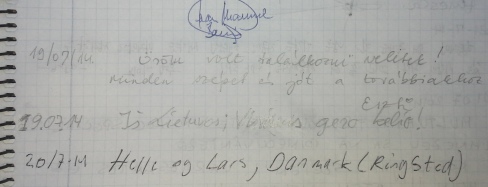 19/07/14 Öröm volt találkozni veletek!
minden szépet és jót a továbbiakhoz
19.07.14 Iš Lietuvos, gero kelio!
20/7-14 Helle og Lars, Danmark (Ringsted)